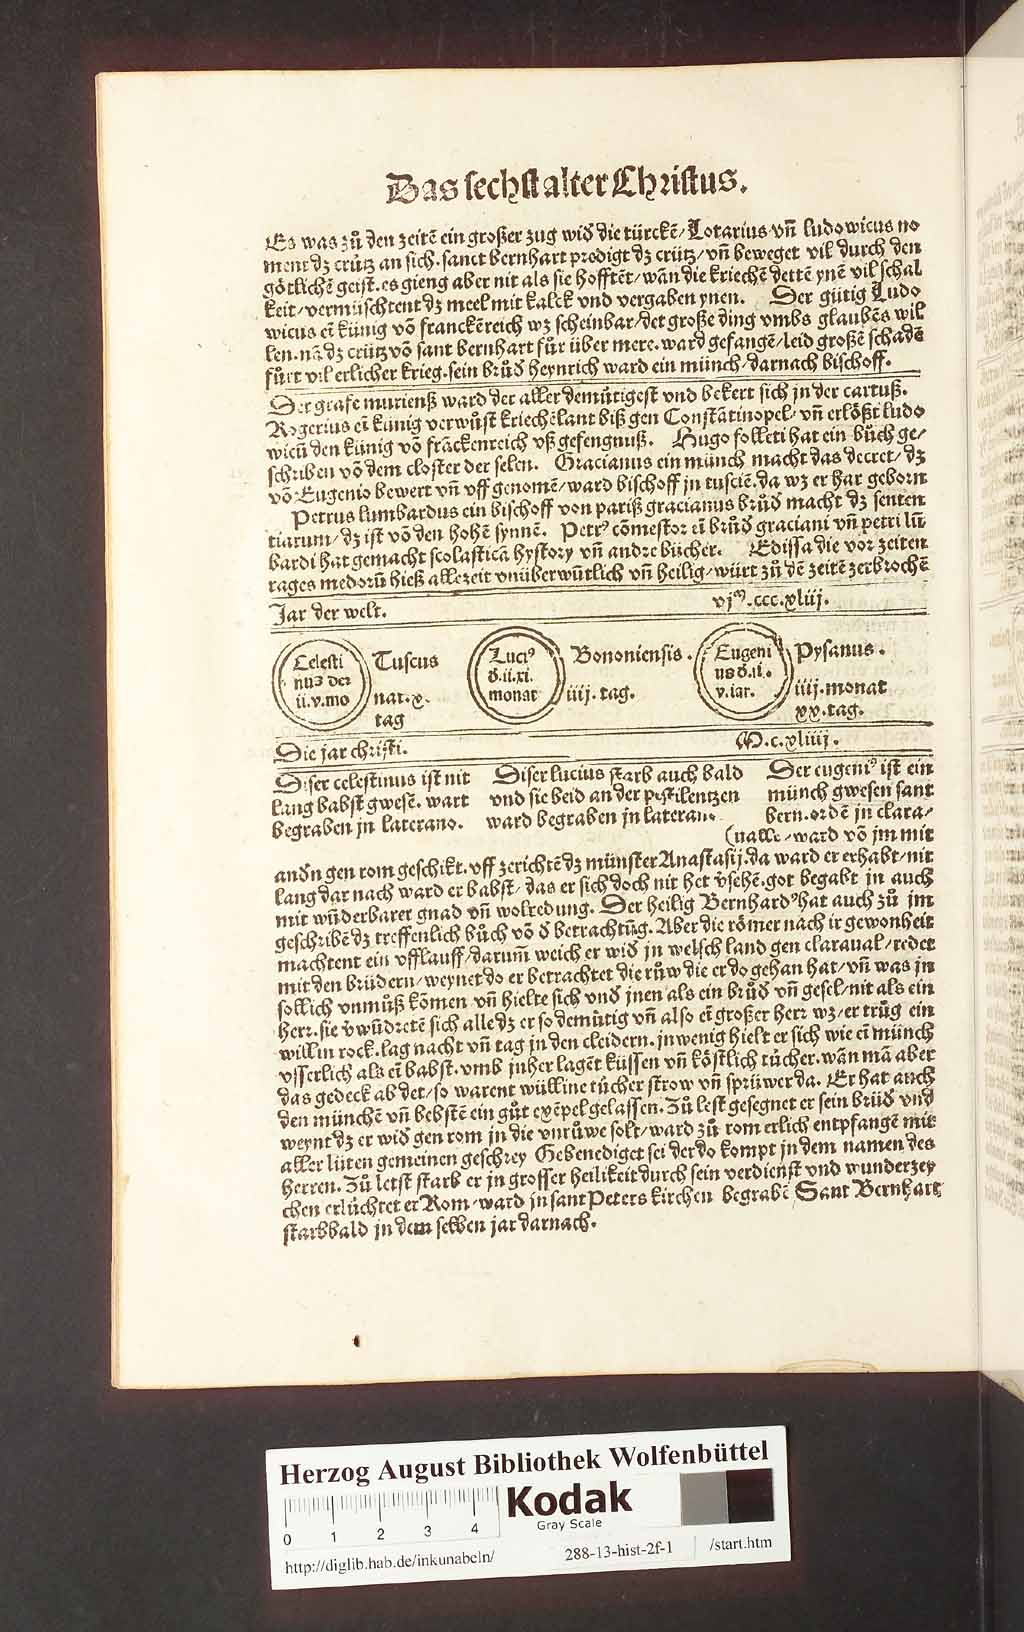 Das sechst alter Christus.
Es was zů den zeitē ein großer zug wid̄ die türckē/ Lotarius vn̄ ludowicus no
ment dz crütz an sich. sanct bernhart prediget dz crütz/ vn̄ beweget vil durch den
götlichē geist. es gieng aber nit als sie hofftēt/ wān die kriechē dettē ynē vil schal
keit/ vermüschtent dz meel mit kalck vnd vergaben ynen. Der gütig Ludo
wicus eī künig vō franckēreich wz scheinbar/ det große ding vmbs glaubēs wil
len. nā dz crütz vō sant bernhart für über mere. ward gefangē/ leid großē schadē
fůrt vil erlicher krieg. sein brůd̄ heynrich ward ein münch/ darnach bischoff.
Der grafe murienß ward der aller demütigest vnd bekert sich jn der cartuß.
Rogerius eī künig verwůst kriechēlant biß gen Constātinopel/ vn̄ erlößt ludo
wicū den künig vō frāckenreich vß gefengnuß. Hugo folleti hat ein bůch ge/
schriben vō dem closter der selen. Gracianus ein münch macht das decret/ dz
vō Eugenio bewert vn̄ vff genomē/ ward bischoff jn tusciē. da wz er har geborn
Petrus lumbardus ein bischoff von pariß gracianus brůd̄ macht dz senten
tiarum/ dz ist vō den hohē synnē. Petr⁹ cōmestor eī brůd̄ graciani vn̄ petri lū
bardi hat gemacht scolasticā hystory vn̄ andre bücher. Edissa die vor zeiten
rages medorū hieß allezeit vnüberwūtlich vn̄ heilig/ würt zů dē zeitē zerbrochē
Jar der welt. vjᵐ.ccc.xliij.
Celesti
nuz der
ii.v.mo
Tuscus
nat.x.
tag
Luci⁹
d̄.ii.xi.
monat
Bononiensis.
iiij. tag.
Eugeni
us d̄.ii.
v.iar.
Pysanus.
iiij.monat
xx.tag.
Die jar christi. M.c.xliiij.
Diser celestinus ist nit
lang babst gwesē. wart
begraben jn laterano.
Diser lucius starb auch bald
vnd sie beid an der pestilentzen
ward begraben jn laterano
Der eugeni⁹ ist ein
münch gwesen sant
bern. ordē jn clara/
(ualle/ ward vō jm mit
and̄n gen rom geschikt. vff zerichtē dz münster Anastasij. da ward er erhabt/ nit
lang dar nach ward er babst/ das er sich doch nit het v̄sehē. got begabt jn auch
mit wūderbarer gnad vn̄ wolredung. Der heilig Bernhard⁹ hat auch zů jm
geschribē dz treffenlich bůch vō d̄ betrachtūg. Aber die römer nach ir gewonheit
machtent ein vfflauff/ darum̄ weich er wid̄ jn welsch land gen claraual/ redet
mit den brüdern/ weynet do er betrachtet die růw die er do gehan hat/ vn̄ was jn
sollich vnmůß kōmen vn̄ hielte sich vnd̄ jnen als ein brůd̄ vn̄ gesel/ nit als ein
herr. sie v̄wūdretē sich alle dz er so demütig vn̄ also eī großer herr wz/ er trůg ein
willin rock. lag nacht vn̄ tag jn den cleidern. jnwenig hielt er sich wie eī münch
vsserlich als eī babst. vmb jn her lagēt küssen vn̄ köstlich tücher. wān mā aber
das gedeck ab det/ so warent wülline tücher strow vn̄ sprüwer da. Er hat auch
den münchē vn̄ bebstē ein gůt exēpel gelassen. Zů lest gesegnet er sein brüd̄ vnd
weynt dz er wid̄ gen rom jn die vnrůwe solt/ ward zů rom erlich entpfangē mit
aller lüten gemeinen geschrey Gebenediget sei der do kompt jn dem namen des
herren. Zů letst starb er jn grosser heilikeit durch sein verdienst vnd wunderzey
chen erlüchtet er Rom/ ward jn sant Peters kirchen begrabē Sant Bernhart
starb bald jn dem selben jar darnach.
Herzog August Bibliothek Wolfenbüttel
0 1 2 3 4
Kodak
Gray Scale
http://diglib.hab.de/inkunabeln/ 288-13-hist-2f-1 /start.htm